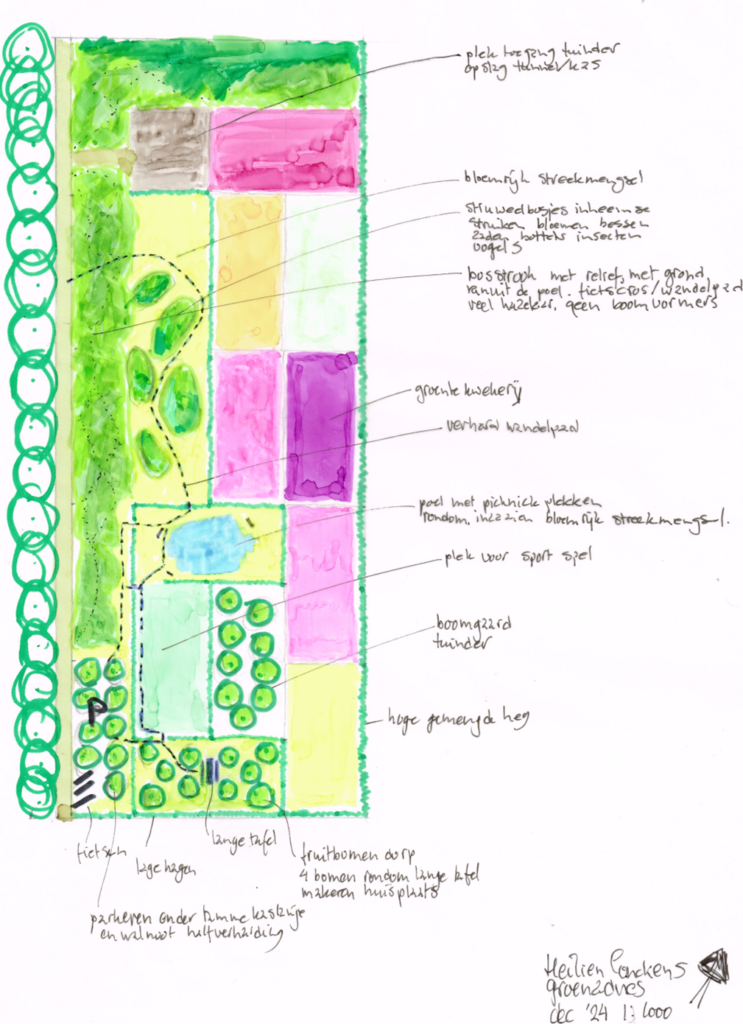 plek toegang tuinder
opslag tunnel/kas
bloemrijk streekmengsel
struweelbosjes inheemse
struiken bloemen bessen
zaden bottels insecten
vogels
bosstrook met relief, met grond
vanuit de poel. fietscross/wandelpad
veel hazelaar, geen boomvormers
groente kwekerij
verhard wandelpad
poel met picknick plekken
rondom inzaaien bloemrijk streekmengsel.
plek voor sport spel
boomgaard
tuinder
hoge gemengde heg
P
fietsen
lage hagen
lange tafel
fruitbomen dorp
4 bomen rondom lange tafel
markeren huisplaats
parkeren onder tamme kastanje
en walnoot halfverharding
Heilien
groenadvies
dec '24 1:1000